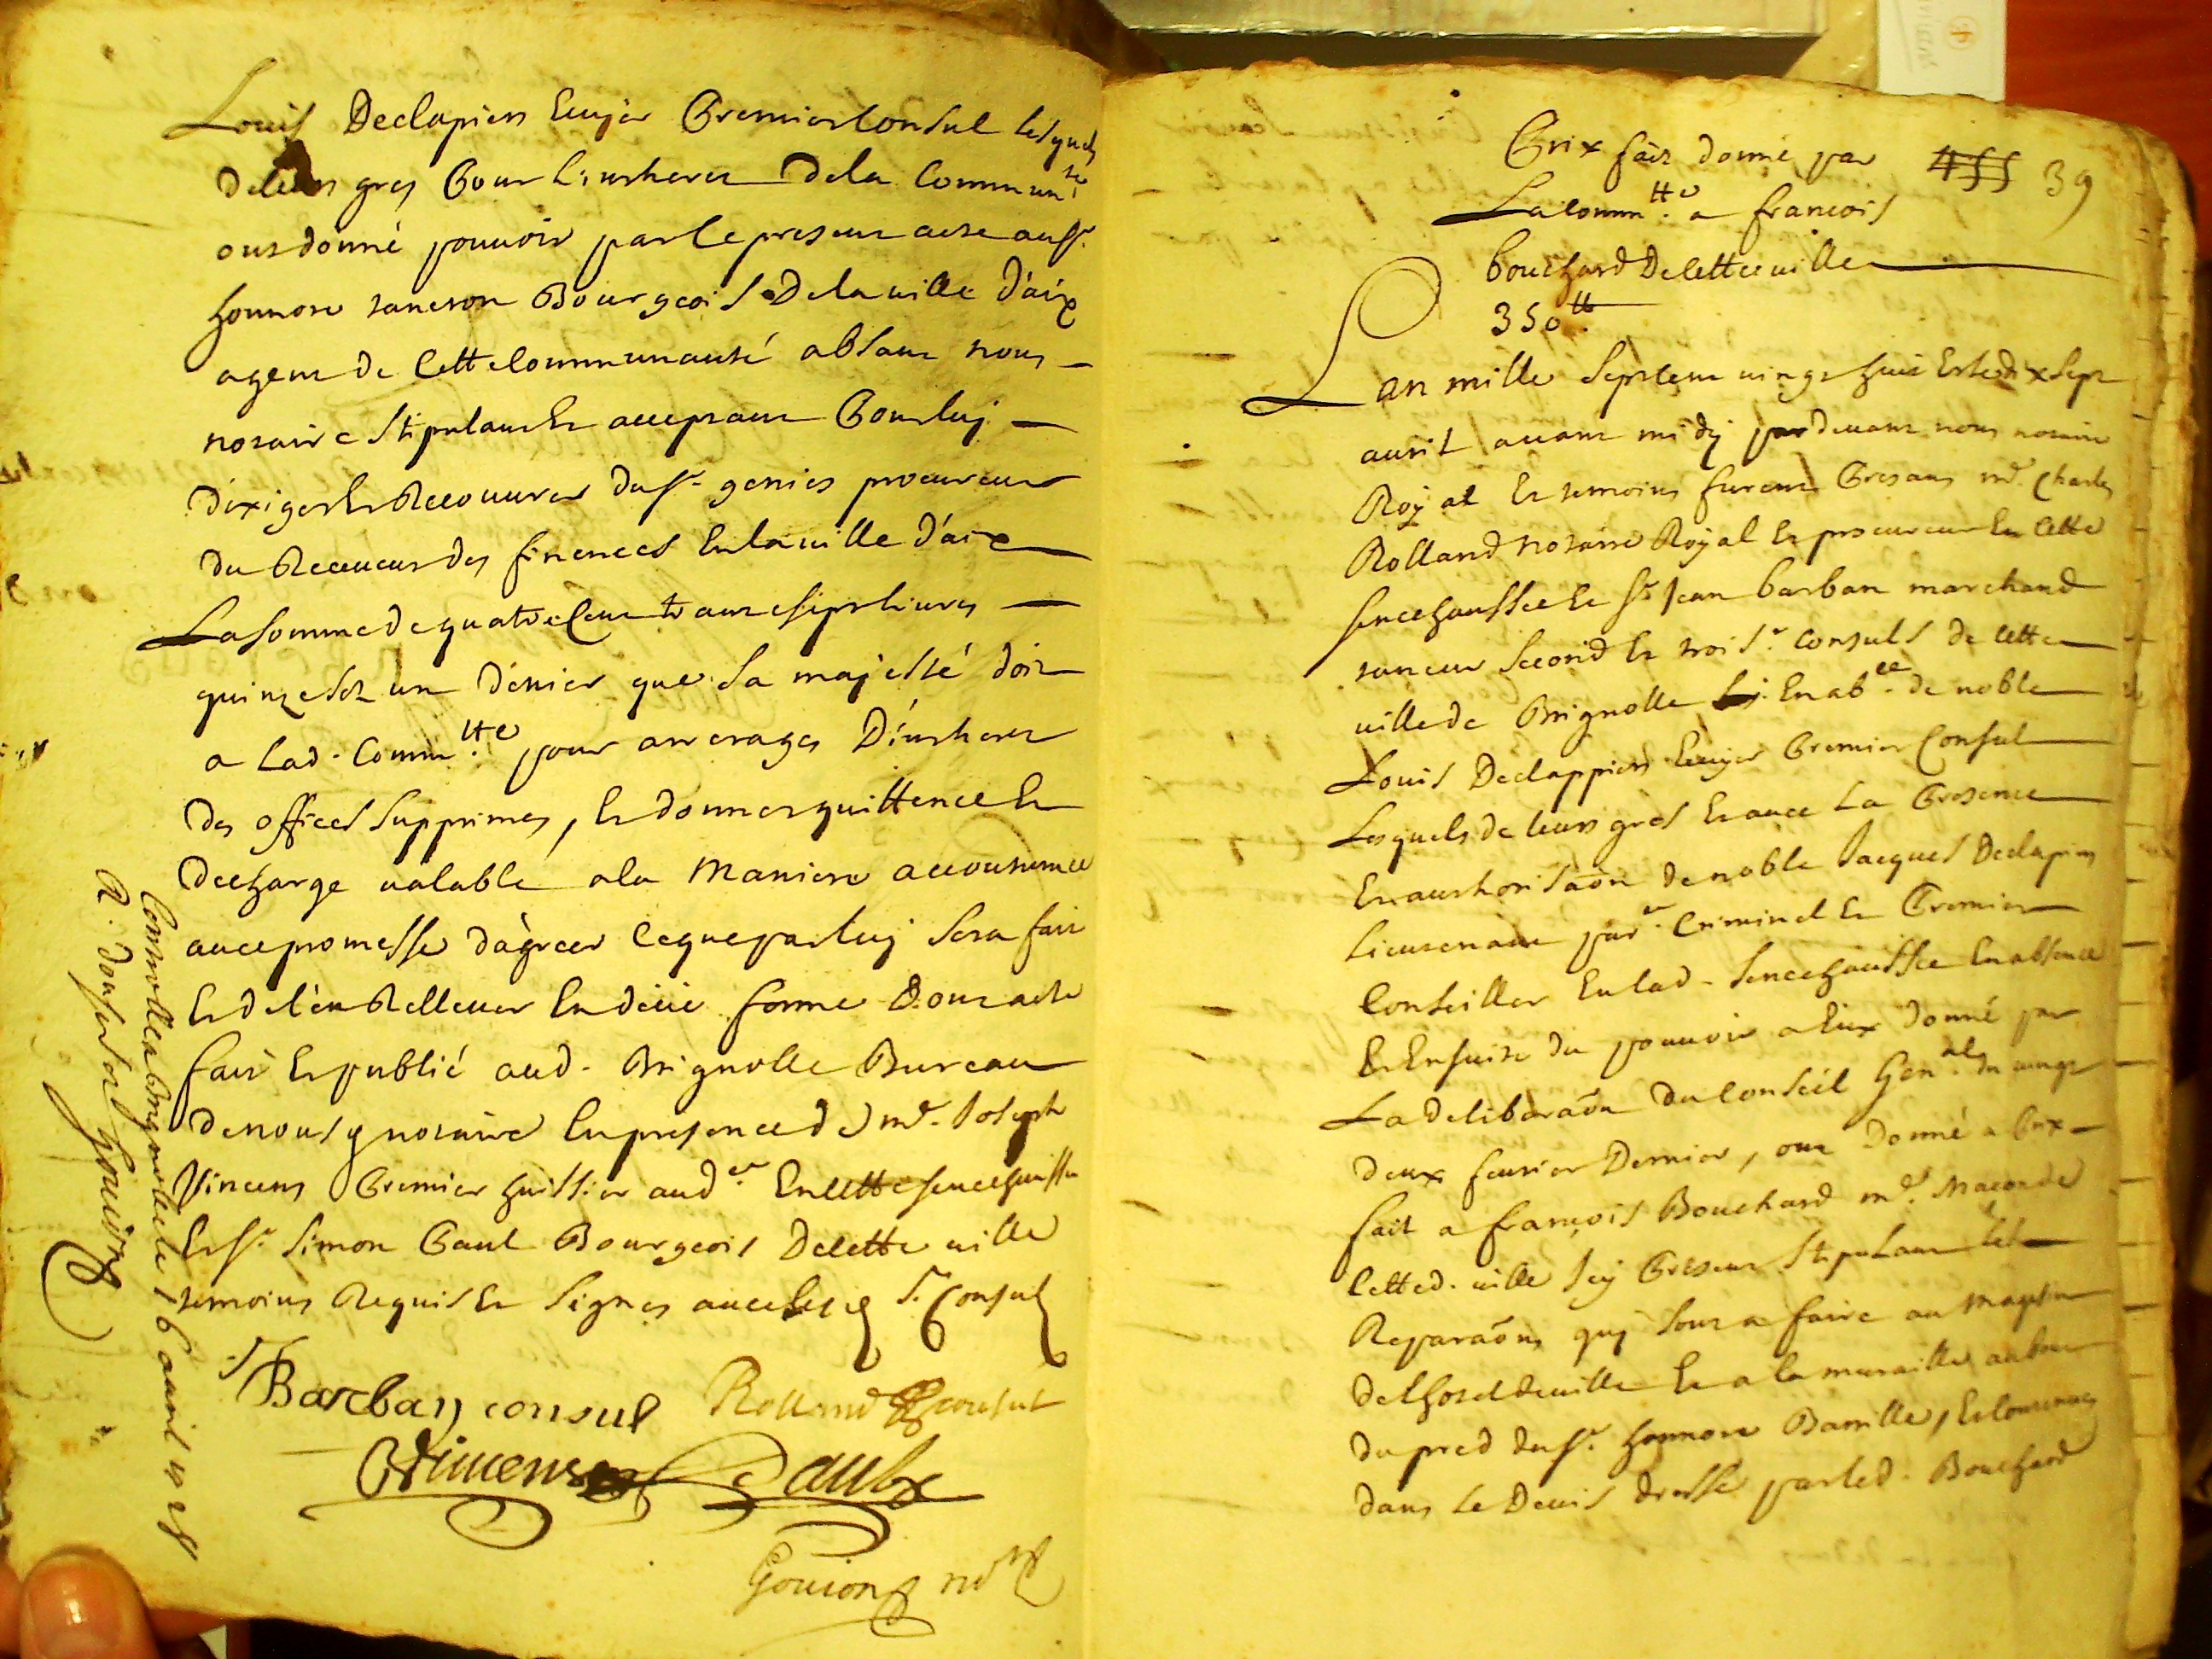 Louis Declapiers Ecuyer Premier Consul lesquels
de leurs gres Pour Linterest De la Commun.té
ont donné pouuoir par le present acte au sr.
honnoré Bourgeois De la uille d'aix
agent de Cette Communauté absant nous
notaire stipulant Et acceptant Pour luy
d'exiger Et Recouurer du sr. genies procureur
du Receueur des finences En la uille d'aix
La somme de quatre Cent trante sept liures
quinze sol un dénier que sa majesté doit
a Lad. Comm.tté pour arrerages D'interest
Des offices supprimes, Et donner quittence Et
Decharge ualable a la Maniere accoutumée
auec promesse d'agreer Ceque par luy sera fait
Et de l'en Relleuer En deüe forme Dont acte
fait Et publié aud. Brignolle Bureau
de nousd. notaire En presence de me. Joseph
Vincens Premier huissier aud.er En cette senechaussée
Et sr. Simon Paul Bourgeois De cette uille
temoins Requis Et signes auec lesd. srs. Consuls
Barban consul Rolland consul
Vincens Paul
Gouion no.re
Controllé a Brignolle le 16 auril 1728
R. douse sol Gouion
Prix fait donné par 455 39
La Comm.tté a francois
bouchard De cette uille
350 tt.
L an mille sept cent uingt huit Et le dix sept
auril auant midy par deuant nous notaire
Royal Et temoins furent Presans me. Charles
Rolland notaire Royal Et procureur En cette
senechaussée Et sr. Jean barban marchand
taneur second Et trois.e consuls de cette
uille de Brignolle En ab.ce de noble
Louis Declappiers Ecuyer Premier Consul
Lesquels de leurs gres Et auec La Presence
Et authorisaõn de noble Jacques Declapiers
Lieutenant par.er Criminel Et Premier
Conseiller En lad. senechaussée En absence
Et Ensuite du pouuoir a Eux donné par
La deliberaõn du Conseil Gen.al du uingt
deux feurier Dernier, ont Donné a Prix
fait a françois Bouchard me. Macon de
cetted. uille Icy Present stipulant les
Reparaõns quy sont a faire au Magasin
de lhotel de uille Et a la muraille au bout
du pred du sr. honnoré Barrille, Et contenues
dans le Deuis dressé par led. Bouchard